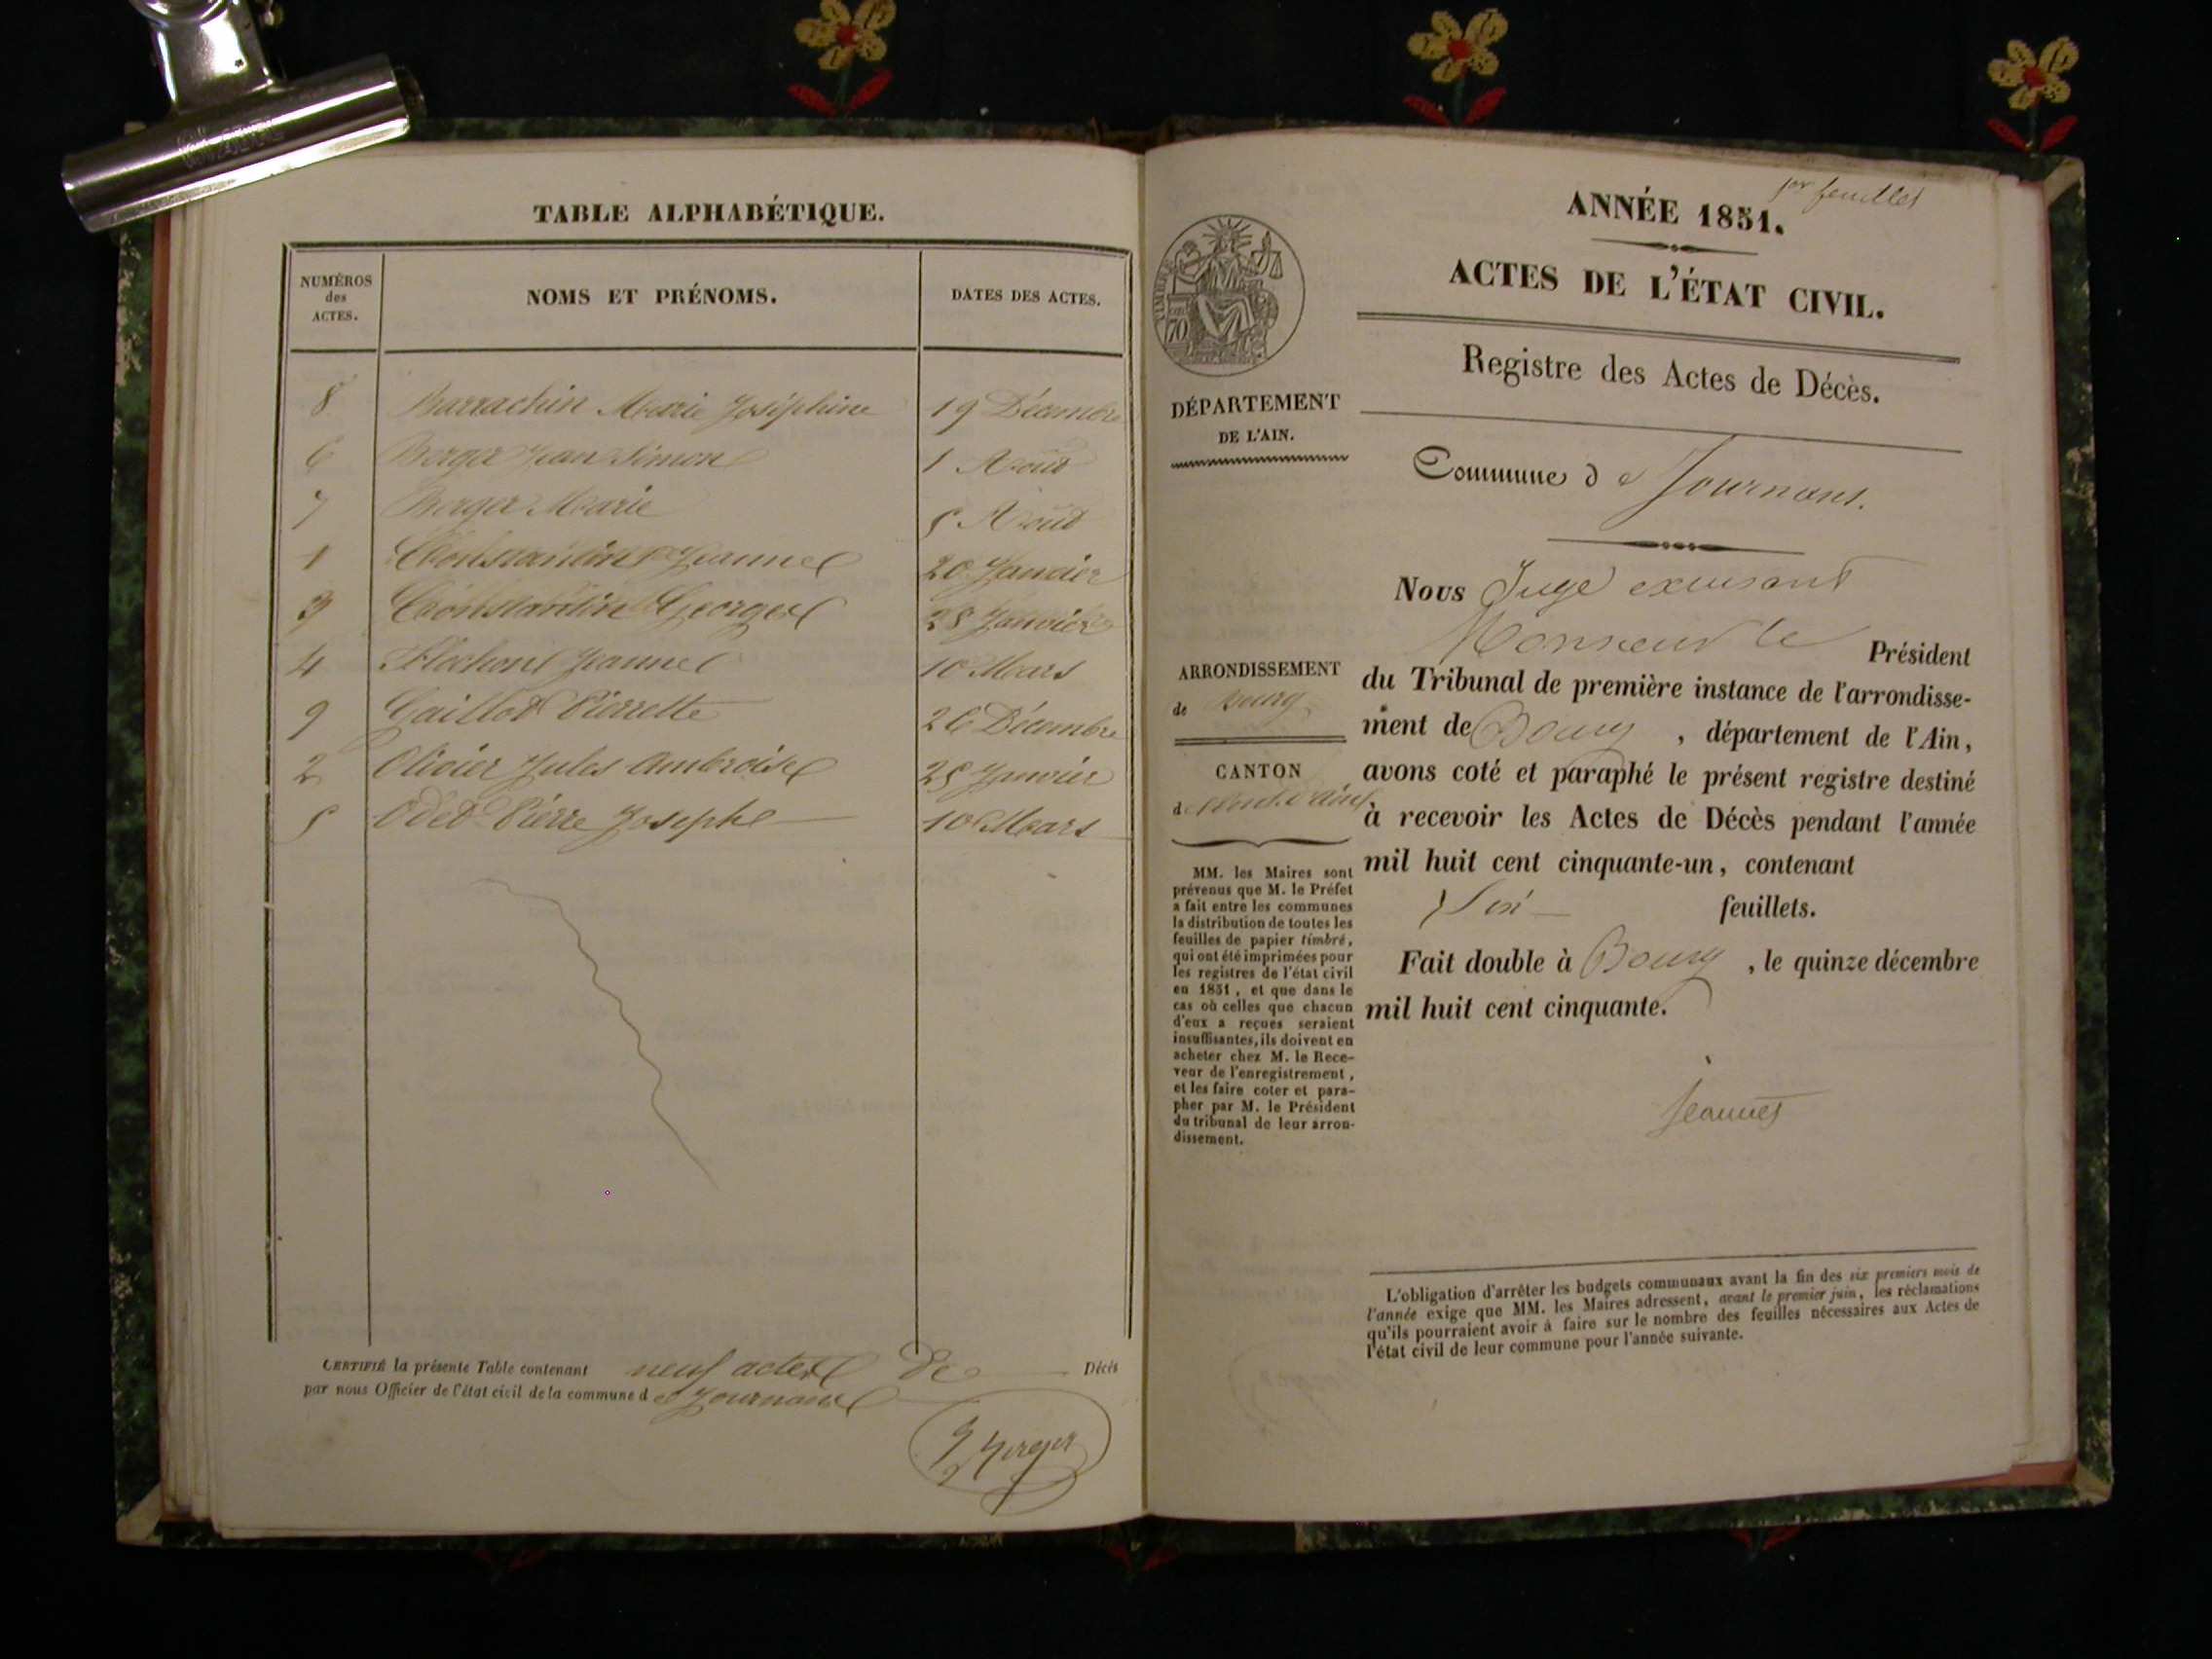 TABLE ALPHABÉTIQUE.
NUMÉROS
des
ACTES.
NOMS ET PRÉNOMS.
DATES DES ACTES.
8 Barrachin Marie Joséphine 19 Décembre
6 Berger Jean Simon 1 Août
7 Berger Marie 5 Août
1 Constantin Jeanne 20 Janvier
3 Constantin George 28 Janvier
4 Flochon Jeanne 10 Mars
9 Gaillot Pierrette 26 Décembre
2 Olivier Jules Ambroise 25 Janvier
5 Odet Pierre Josephe 10 Mars
CERTIFIÉ la présente Table contenant neuf actes de Décès
par nous Officier de l'état civil de la commune de Journans
Berger
1er feuillet
ANNÉE 1851.
ACTES DE L'ÉTAT CIVIL.
Registre des Actes de Décès.
TIMBRE
70
DÉPARTEMENT
DE L'AIN.
Commune de Journans.
ARRONDISSEMENT
de Bourg
CANTON
de Pont-d'ain
MM. les Maires sont
prévenus que M. le Préfet
a fait entre les communes
la distribution de toutes les
feuilles de papier timbré,
qui ont été imprimées pour
les registres de l'état civil
en 1851, et que dans le
cas où celles que chacun
d'eux a reçues seraient
insuffisantes, ils doivent en
acheter chez M. le Rece-
veur de l'enregistrement,
et les faire coter et para-
pher par M. le Président
du tribunal de leur arron-
dissement.
Nous Juge excusant
Monsieur le Président
du Tribunal de première instance de l'arrondisse-
ment de Bourg, département de l'Ain,
avons coté et paraphé le présent registre destiné
à recevoir les Actes de Décès pendant l'année
mil huit cent cinquante-un, contenant
Six feuillets.
Fait double à Bourg, le quinze décembre
mil huit cent cinquante.
L'obligation d'arrêter les budgets communaux avant la fin des six premiers mois de
l'année exige que MM. les Maires adressent, avant le premier juin, les réclamations
qu'ils pourraient avoir à faire sur le nombre des feuilles nécessaires aux Actes de
l'état civil de leur commune pour l'année suivante.